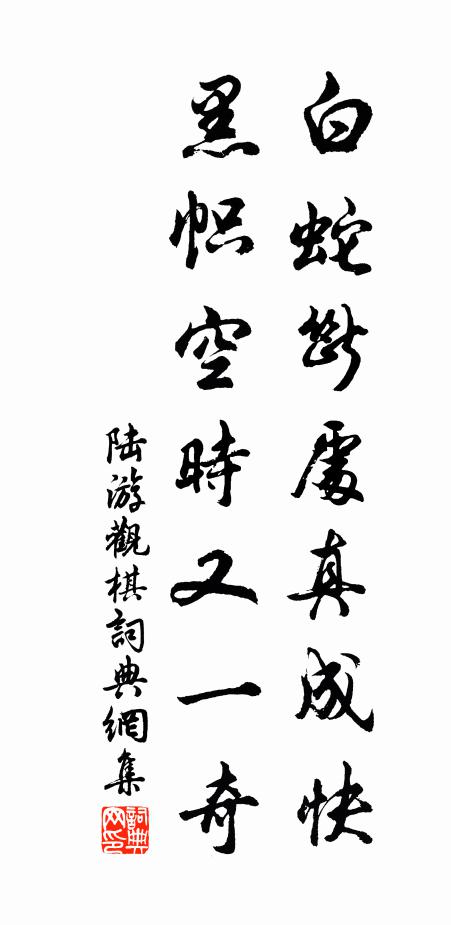 白蛇斷處真成快
黑帜空時又一奇
陆游觀棋詞典網集
詞典网印